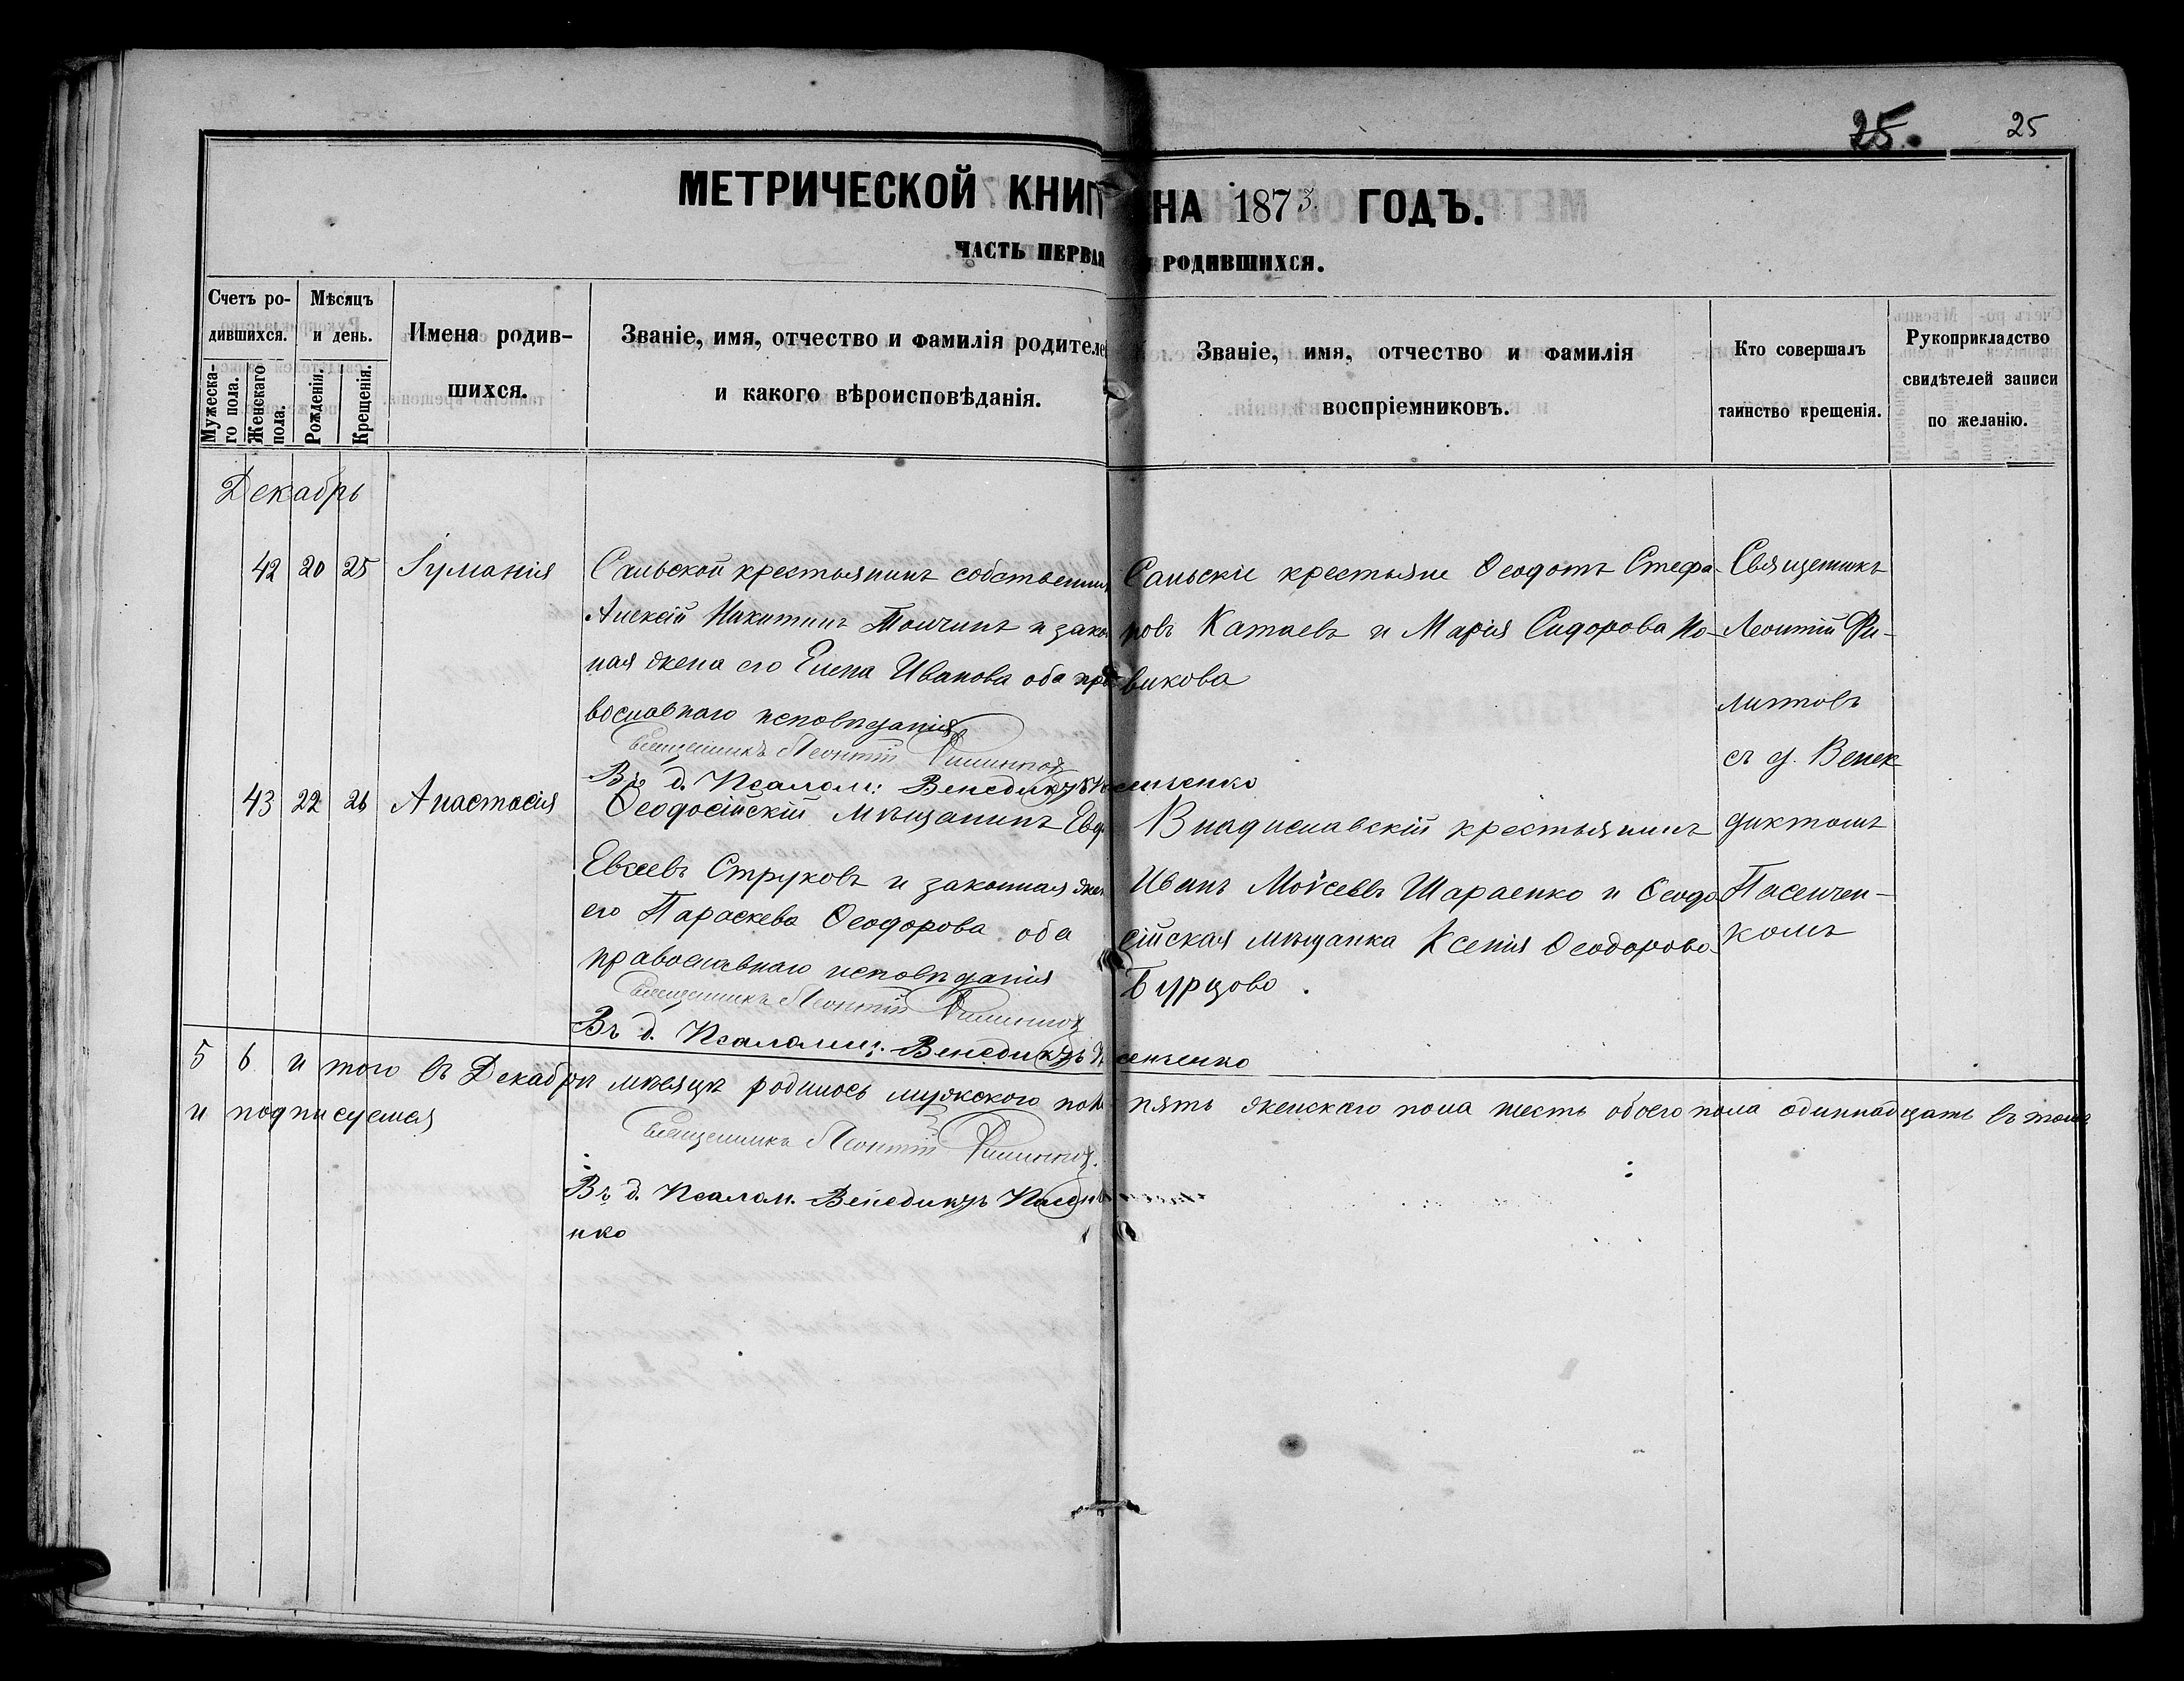 25. 25
МЕТРИЧЕСКОЙ КНИГ НА 1873 ГОДЪ.
ЧАСТЬ ПЕРВАЯ РОДИВШИХСЯ.
Счетъ ро-
дившихся.
Мужеска-
го пола.
Женскаго
пола.
Мѣсяцъ
и день.
Рожденія.
Крещенія.
Имена родив-
шихся.
Званіе, имя, отчество и фамилія родителе
и какого вѣроисповѣданія.
Званіе, имя, отчество и фамилія
воспріемниковъ.
Кто совершалъ
таинство крещенія.
Рукоприкладство
свидѣтелей записи
по желанію.
Декабрь
42 20 25 Іуліанія
Сальской крестьянинъ собственни
Алексій Никитинъ Толчинъ и закон
ная жена его Елена Иванова оба пра
вославнаго исповѣданія
Священникъ Леонтій Филиппов
Въ д. Псалом: Венедиктъ Пасенченко
Сальскіе крестьяне Ѳеодотъ Стефа-
новъ Катаевъ и Марія Сидорова Но-
викова
43 22 26 Анастасія
Ѳеодосійскій мѣщанинъ Евд
Евсеевъ Струковъ и законная жен
его Параскева Ѳеодорова оба
православнаго исповѣданія
Священникъ Леонтій Филиппов
Въ д. Псаломщ: Венедиктъ Пасенченко
Владиславскій крестьянинъ
Иванъ Мойсеевъ Шараенко и Ѳеодо
сійская мѣщанка Ксенія Ѳеодорова
Бурцова.
Священникъ
Леонтій Фи-
липповъ
съ д. Венек
диктомъ
Пасенчен-
комъ
5 6 и того въ Декабрѣ мѣсяцѣ родилось мужского пола пять женскаго пола шесть обоего пола одиннадцать въ томъ
и подписуемся
Священникъ Леонтій Филиппов.
Въ д. Псалом. Венедиктъ Пасенче
нко